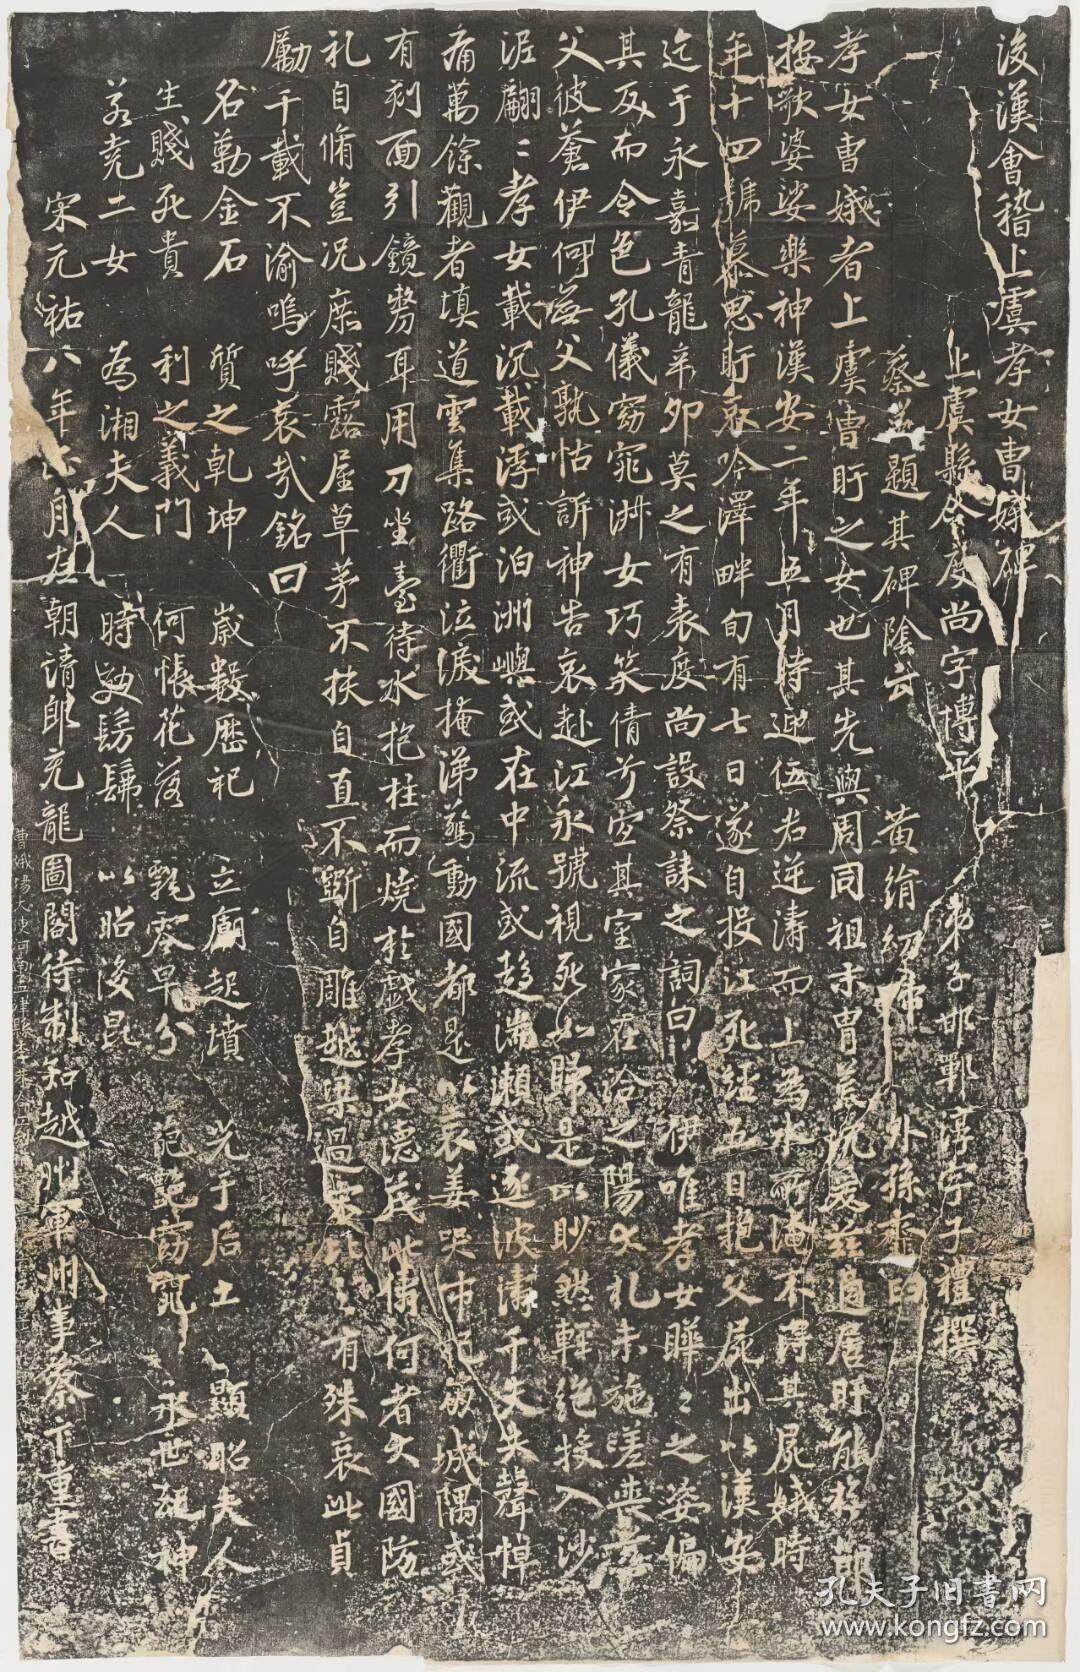 後漢會稽上虞孝女曹娥碑
上虞縣令度尚字博平 弟子邯鄲淳字子禮撰
蔡邕題其碑陰云 黃絹幼婦 外孫齏臼
孝女曹娥者上虞曹盱之女也其先與周同祖末胄荒沉爰茲適居盱能撫節
按歌婆娑樂神漢安二年五月時迎伍君逆濤而上為水所淹不得其屍娥時
年十四號慕思盱哀吟澤畔旬有七日遂自投江死經五日抱父屍出以漢安
迄于永嘉青龍辛卯莫之有表度尚設祭誄之詞曰 伊唯孝女曄〻之姿偏
其反而令色孔儀窈窕淑女巧笑倩兮宜其室家在洽之陽大礼未施嗟喪慈
父彼蒼伊何無父孰怙訴神告哀赴江永號視死如歸是以眇然輕絕投入沙
泥翩〻孝女載沉載浮或泊洲嶼或在中流或趨湍瀨或逐波濤千夫失聲悼
痛萬餘觀者填道雲集路衢泣淚掩涕驚動國都是以哀姜哭市杞崩城隅或
有剋面引鏡剺耳用刀坐臺待水抱柱而燒於戲孝女德茂此儔何者大國防
礼自脩豈況庶賤露屋草茅不扶自直不斲自雕越梁過宋比之有殊哀此貞
勵千載不渝嗚呼哀哉銘曰
名勒金石 質之乾坤 歲數歷祀 立廟起墳 光于后土 顯昭夫人
生賤死貴 利之義門 何悵花落 飄零早分 葩艷窈窕 永世配神
若堯二女 為湘夫人 時效髣髴 以昭後昆
宋元祐八年 月左朝請郎充龍圖閣待制知越州軍州事蔡卞重書
孔夫子旧書网
www.kongfz.com